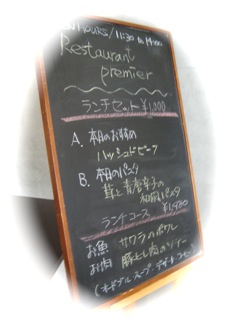 11:30 to 14:00
Restaurant
premier
ランチセット ¥1,000
A. 本日のおすすめ
ハッシュドビーフ
B. 本日のパスタ
茸と青唐辛子の
和風パスタ
ランチコース ¥1,980
お魚 サワラのポワレ
お肉 豚ヒレ肉のソテー
(オードブル・スープ・デザート・コーヒー